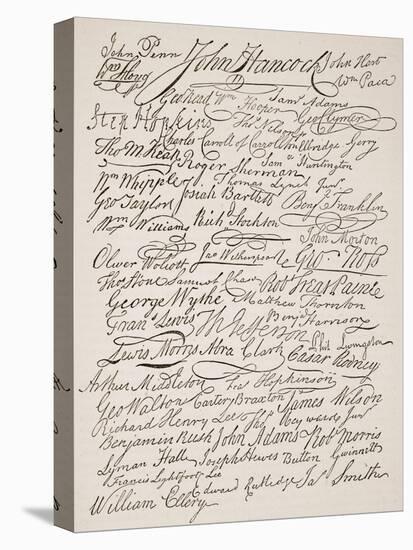 John Penn John Hancock John Hart
Wm Floyd Wm Paca
Geo Read Wm Hooper Saml Adams
Step Hopkins Thos Nelson jr Geo Clymer
Charles Carroll of Carrollton Elbridge Gerry
Tho M:Kean Roger Sherman Saml Huntington
Wm Whipple Thomas Lynch Junr
Geo Taylor Josiah Bartlett Benj Franklin
Wm Williams Richd Stockton John Morton
Oliver Wolcott Jno Witherspoon Geo. Ross
Thos Stone Samuel Chase Robt Treat Paine
George Wythe Matthew Thornton
Frans Lewis Th Jefferson Benj Harrison
Lewis Morris Abra Clark Phil. Livingston
Cæsar Rodney
Arthur Middleton Fras Hopkinson
Geo Walton Carter Braxton James Wilson
Richard Henry Lee Thos Heyward Junr
Benjamin Rush John Adams Robt Morris
Lyman Hall Joseph Hewes Button Gwinnett
Francis Lightfoot Lee
William Ellery Edward Rutledge Jas Smith